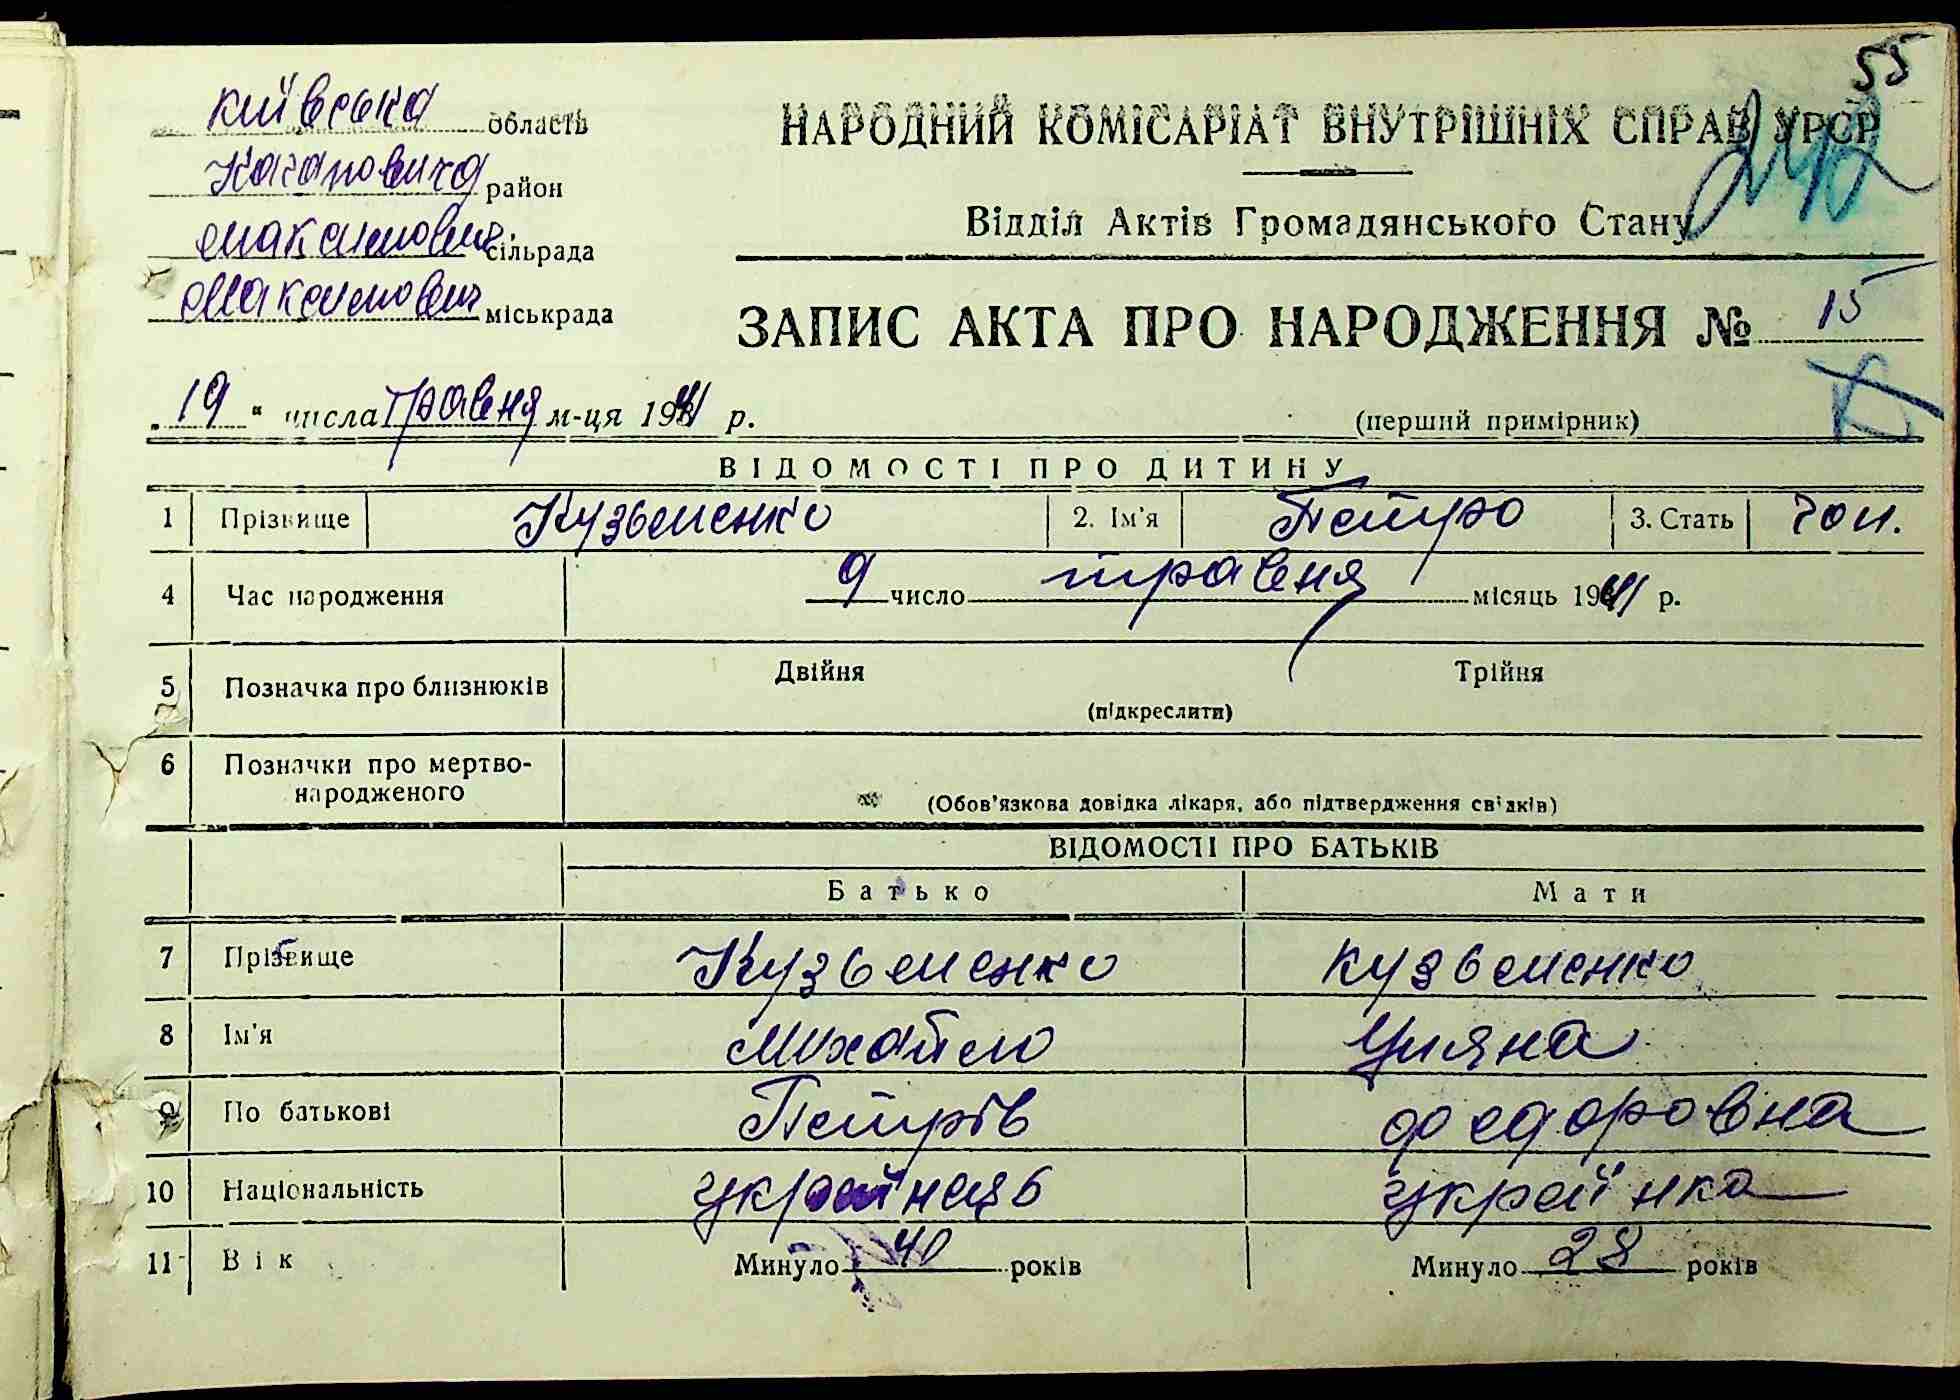 55
Київська область
Кагановича район
Максимович сільрада
Максимович міськрада
НАРОДНИЙ КОМІСАРІАТ ВНУТРІШНІХ СПРАВ УРСР
Відділ Актів Громадянського Стану
ЗАПИС АКТА ПРО НАРОДЖЕННЯ № 15
„19“ числа травня м-ця 1941 р.
(перший примірник)
ВІДОМОСТІ ПРО ДИТИНУ
1 Прізвище Кузьменко 2. Ім'я Петро 3. Стать чол.
4 Час народження 9 число травня місяць 1941 р.
5 Позначка про близнюків Двійня Трійня
(підкреслити)
6 Позначки про мертво-
народженого (Обов'язкова довідка лікаря, або підтвердження свідків)
ВІДОМОСТІ ПРО БАТЬКІВ
Батько Мати
7 Прізвище Кузьменко Кузьменко
8 Ім'я Михайло Уляна
9 По батькові Петрів Федоровна
10 Національність українець українка
11 Вік Минуло 40 років Минуло 28 років